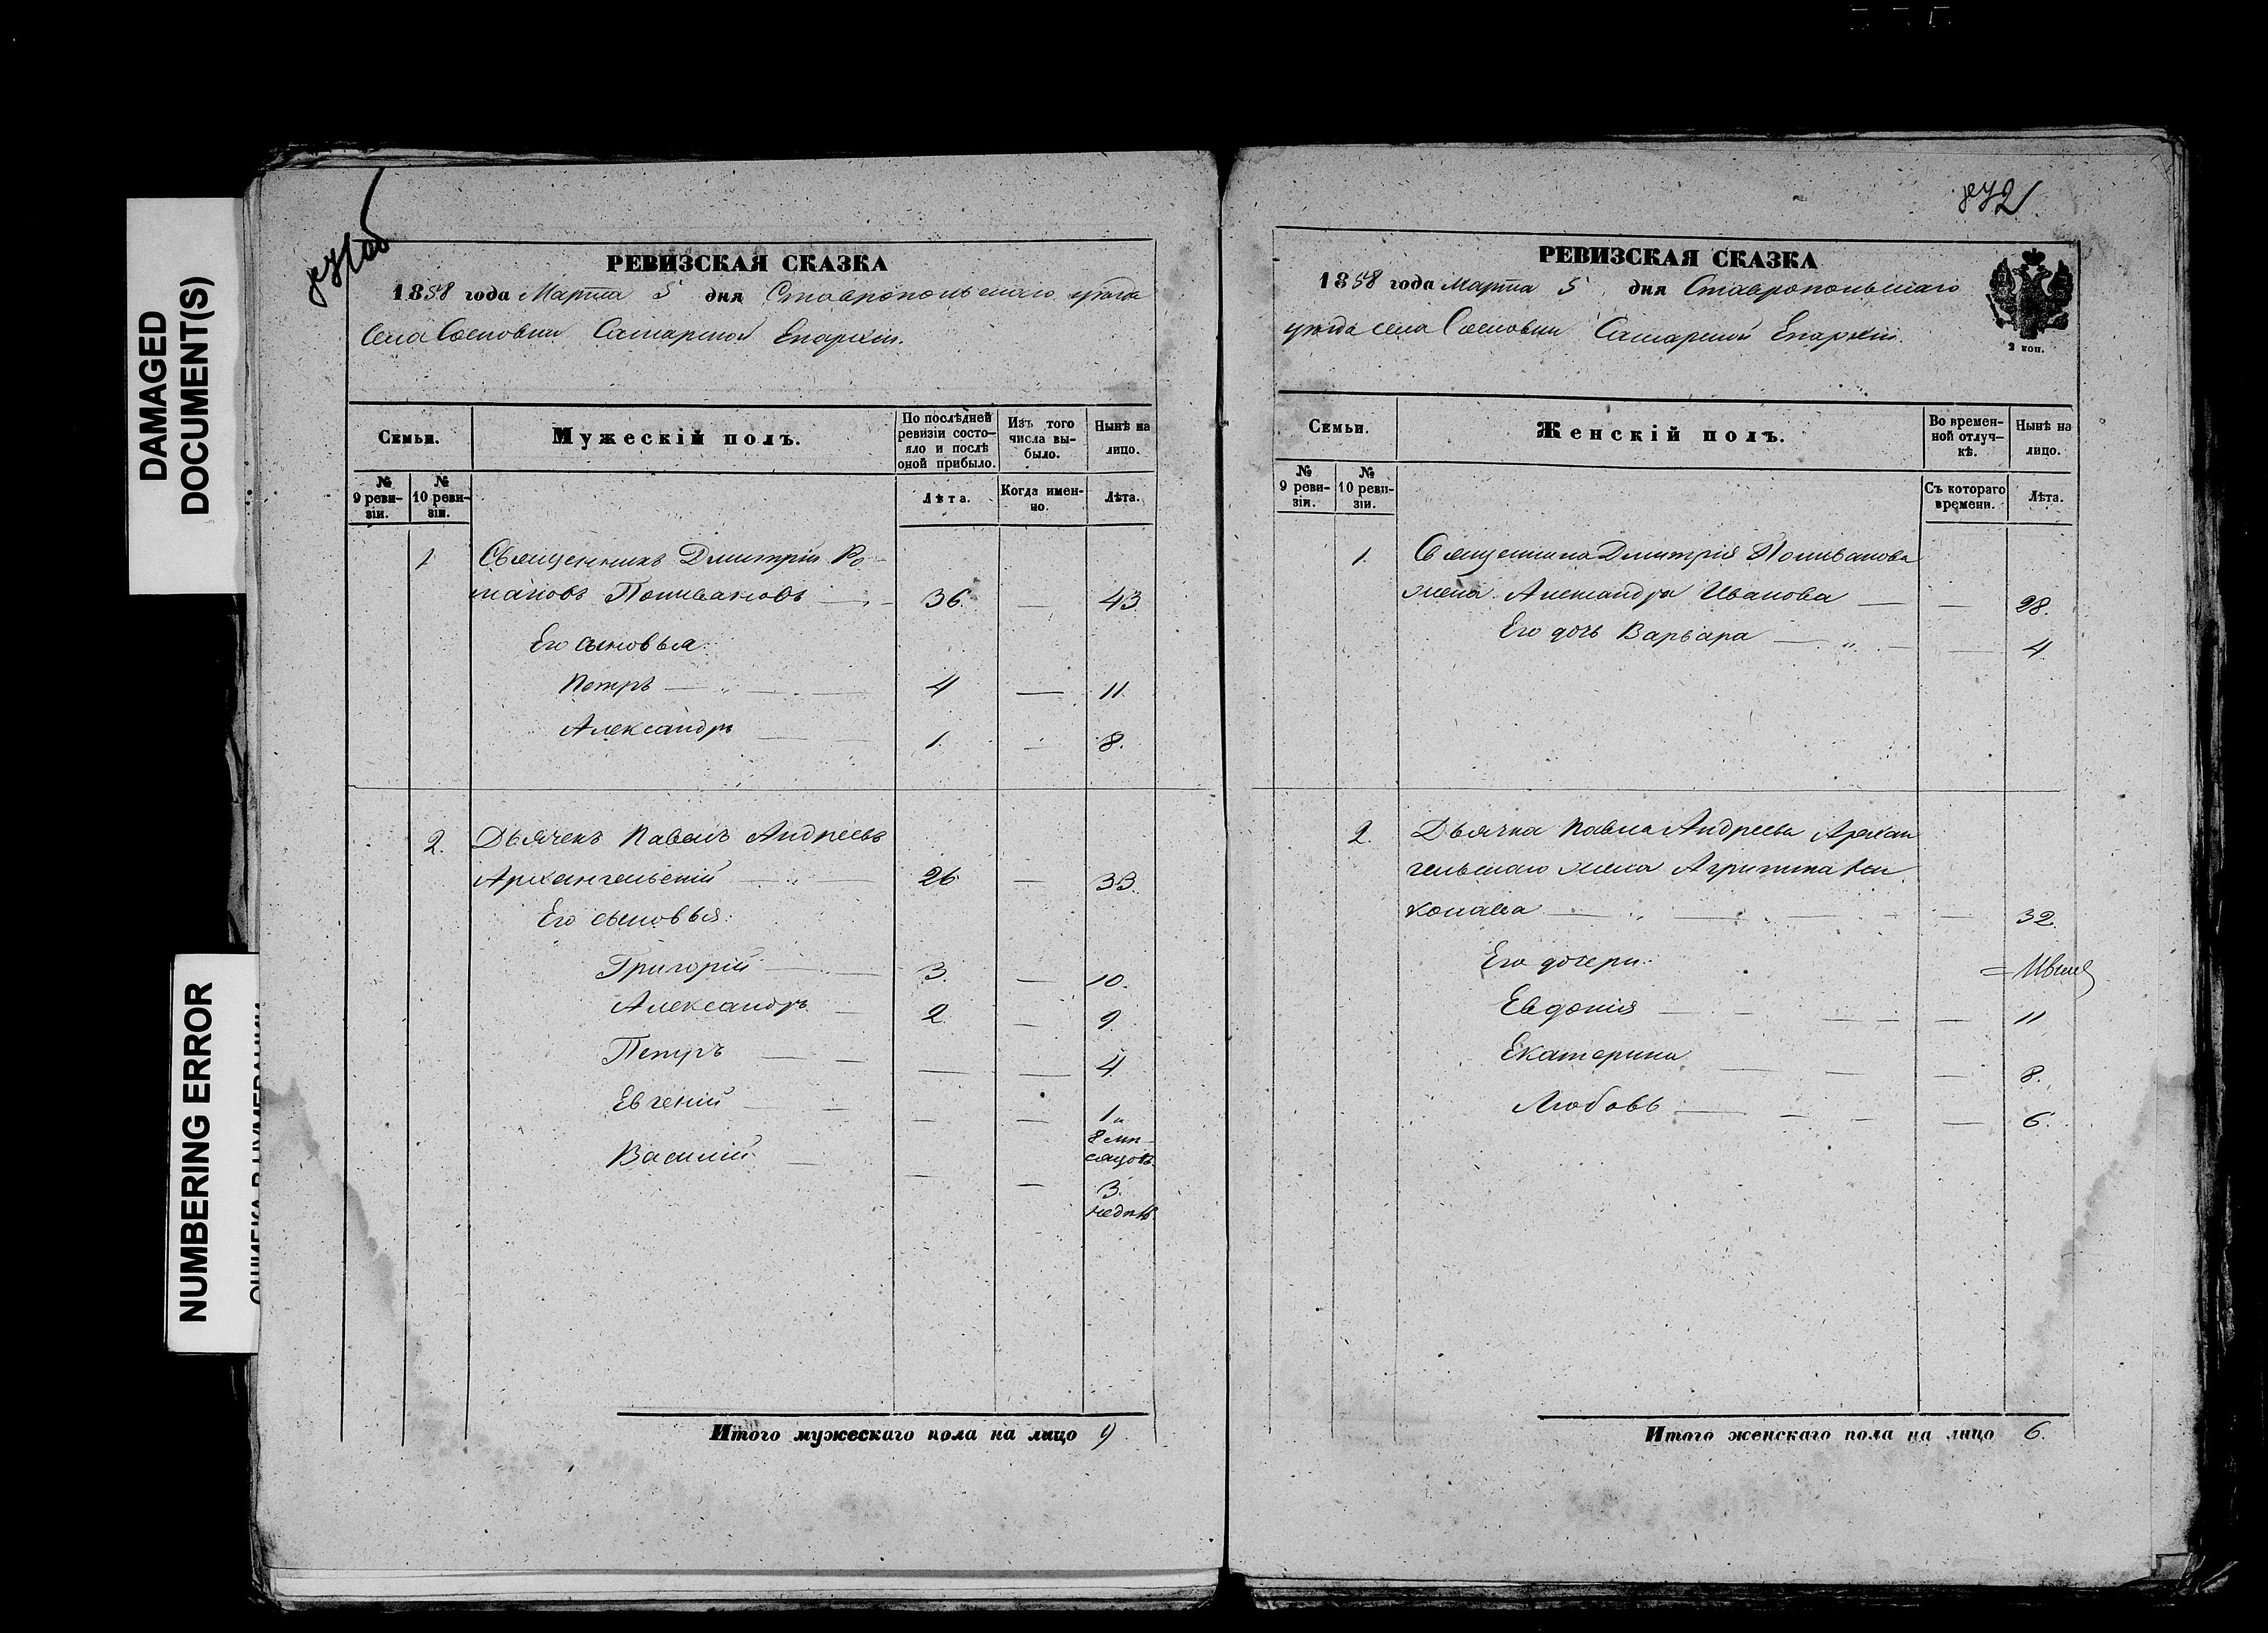 DAMAGED
DOCUMENT(S)
NUMBERING ERROR
871об
РЕВИЗСКАЯ СКАЗКА
1858 года Марта 5 дня Ставропольскаго уѣзда
Села Сосновки Самарской Епархіи.
Семьи.
Мужескій полъ.
По послѣдней
ревизіи состо-
яло и послѣ
оной прибыло.
Изъ того
числа вы-
было.
Нынѣ на
лицо.
№
9 реви-
зіи.
№
10 реви-
зіи.
Лѣта.
Когда имен-
но.
Лѣта.
1 Священникъ Дмитрій Ро-
мановъ Поливановъ — 36. — 43.
Его сыновья:
Петръ — 4 — 11.
Александръ — 1. — 8.
2. Дьячекъ Павелъ Андреевъ
Архангельскій — 26 — 33.
Его сыновья:
Григорій — 3. — 10.
Александръ — 2. — 9.
Петръ — — — 4.
Евгеній — — — 1 "
8 мѣ-
сяцовъ.
Василій — — —
3.
недѣли.
Итого мужескаго пола на лицо 9
872
РЕВИЗСКАЯ СКАЗКА
1858 года Марта 5 дня Ставропольскаго
уѣзда села Сосновки Самарской Епархіи.
2 коп.
Семьи.
Женскій полъ.
Во времен-
ной отлуч-
кѣ.
Нынѣ на
лицо.
№
9 реви-
зіи.
№
10 реви-
зіи.
Съ котораго
времени.
Лѣта.
1. Священника Дмитрія Поливанова
жена Александра Иванова — — 28.
Его дочь Варвара — — 4.
2. Дьячка Павла Андреева Архан
гельскаго жена Агрипина
— — 32.
Его дочери:
Евдокія — — 11
Екатерина — — 8.
Любовь — — 6.
Итого женскаго пола на лицо 6.